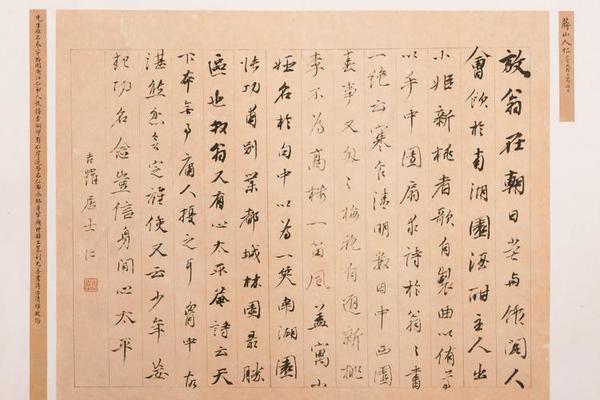 蔣山人仁
放翁在朝日嘗與館閣人
會飲於南湖園酒酣主人出
小姬新桃者歌自製曲以侑尊
以手中團扇求詩於翁〻書
一絕云寒食清明數日中西園
春事又匆〻梅花自避新桃
李不為高樓一笛風蓋寓小
姬名於句中以為一笑南湖園
功甫別業都城林園最勝
處也放翁又有心太平菴詩云天
下本無事庸人擾之耳胸中故
湛然忿欲定誰使又云少年妄
起功名念豈信身閒心太平
吉羅居士仁